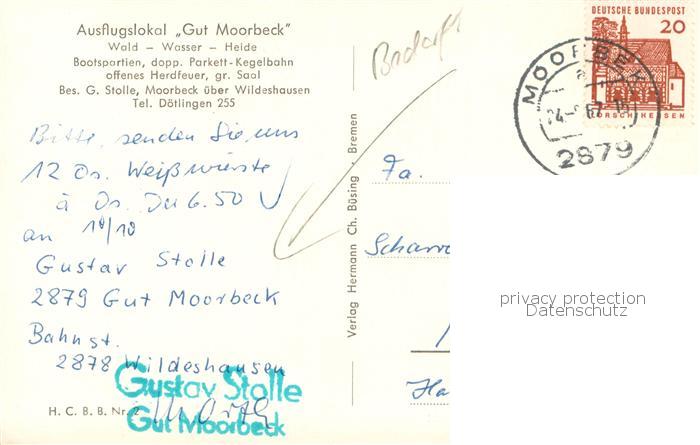 Ausflugslokal „Gut Moorbeck"
Wald – Wasser – Heide
Bootspartien, dopp. Parkett-Kegelbahn
offenes Herdfeuer, gr. Saal
Bes. G. Stolle, Moorbeck über Wildeshausen
Tel. Dötlingen 255
Bitte senden Sie uns
12 Ds. Weißwürste
à Ds. DM 6.50
an 10/10
Gustav Stolle
2879 Gut Moorbeck
Bahnst.
2878 Wildeshausen
Gustav Stolle
Gut Moorbeck
H. C. B. B. Nr. 2
Verlag Hermann Ch. Büsing · Bremen
Fa.
DEUTSCHE BUNDESPOST
20
LORSCH/HESSEN
MOORBEK
2879
privacy protection
Datenschutz